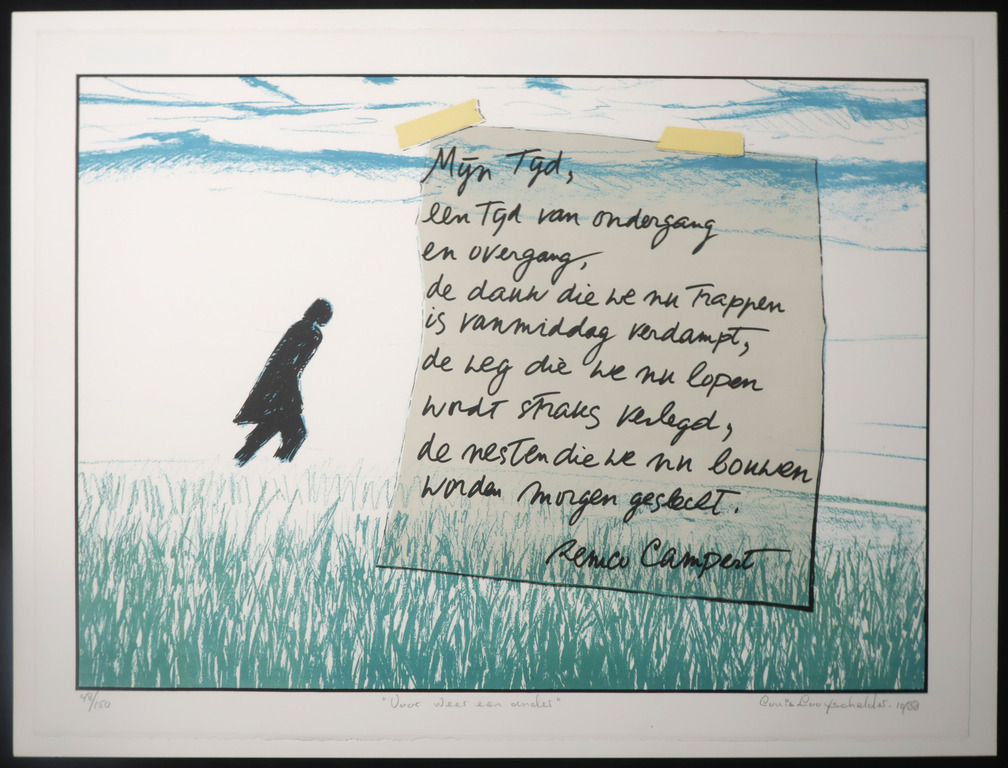 Mijn Tijd,
een Tijd van ondergang
en overgang,
de dauw die we nu Trappen
is vanmiddag verdampt,
de weg die we nu lopen
wordt straks verlegd,
de nesten die we nu bouwen
worden morgen geslecht.
Remco Campert
/150
"Voor weer een ander"
Louis Looyschelder.